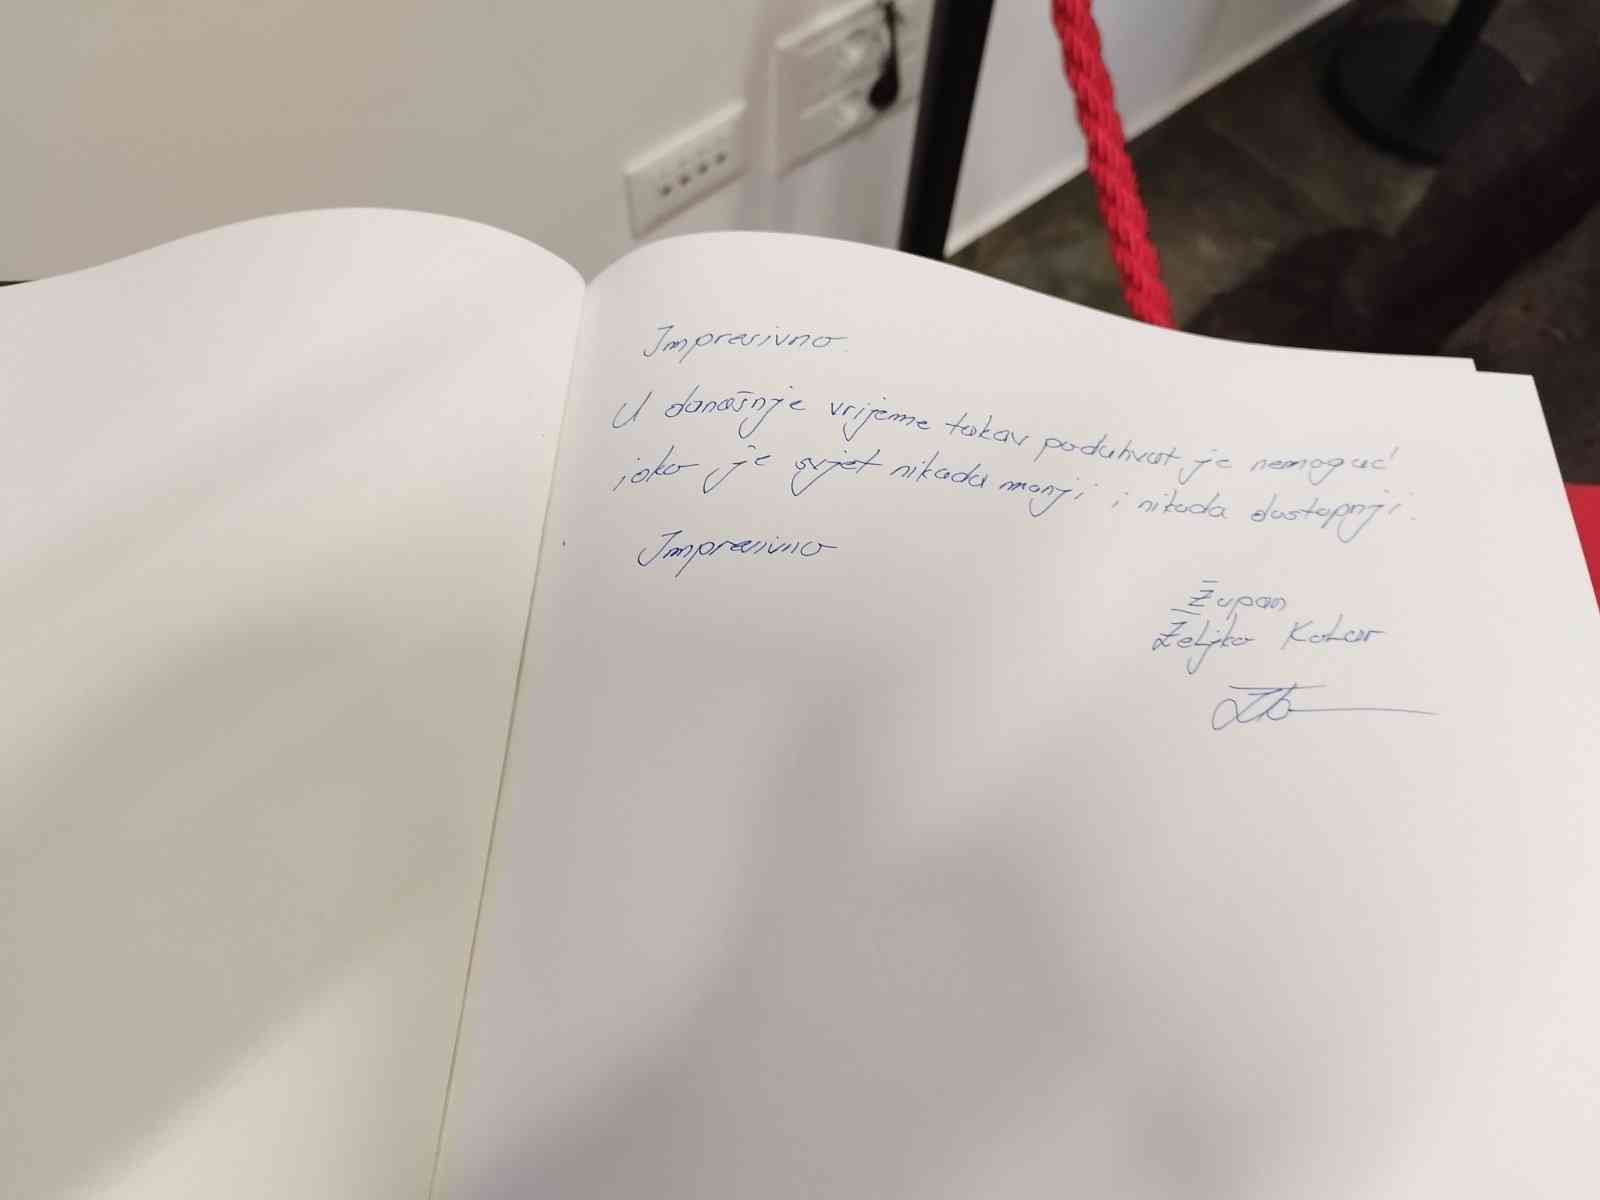 Impresivno.
U današnje vrijeme takav poduhvat je nemoguć
iako je svjet nikada manji i nikada dostupnji.
Impresivno
Župan
Željko Kolar